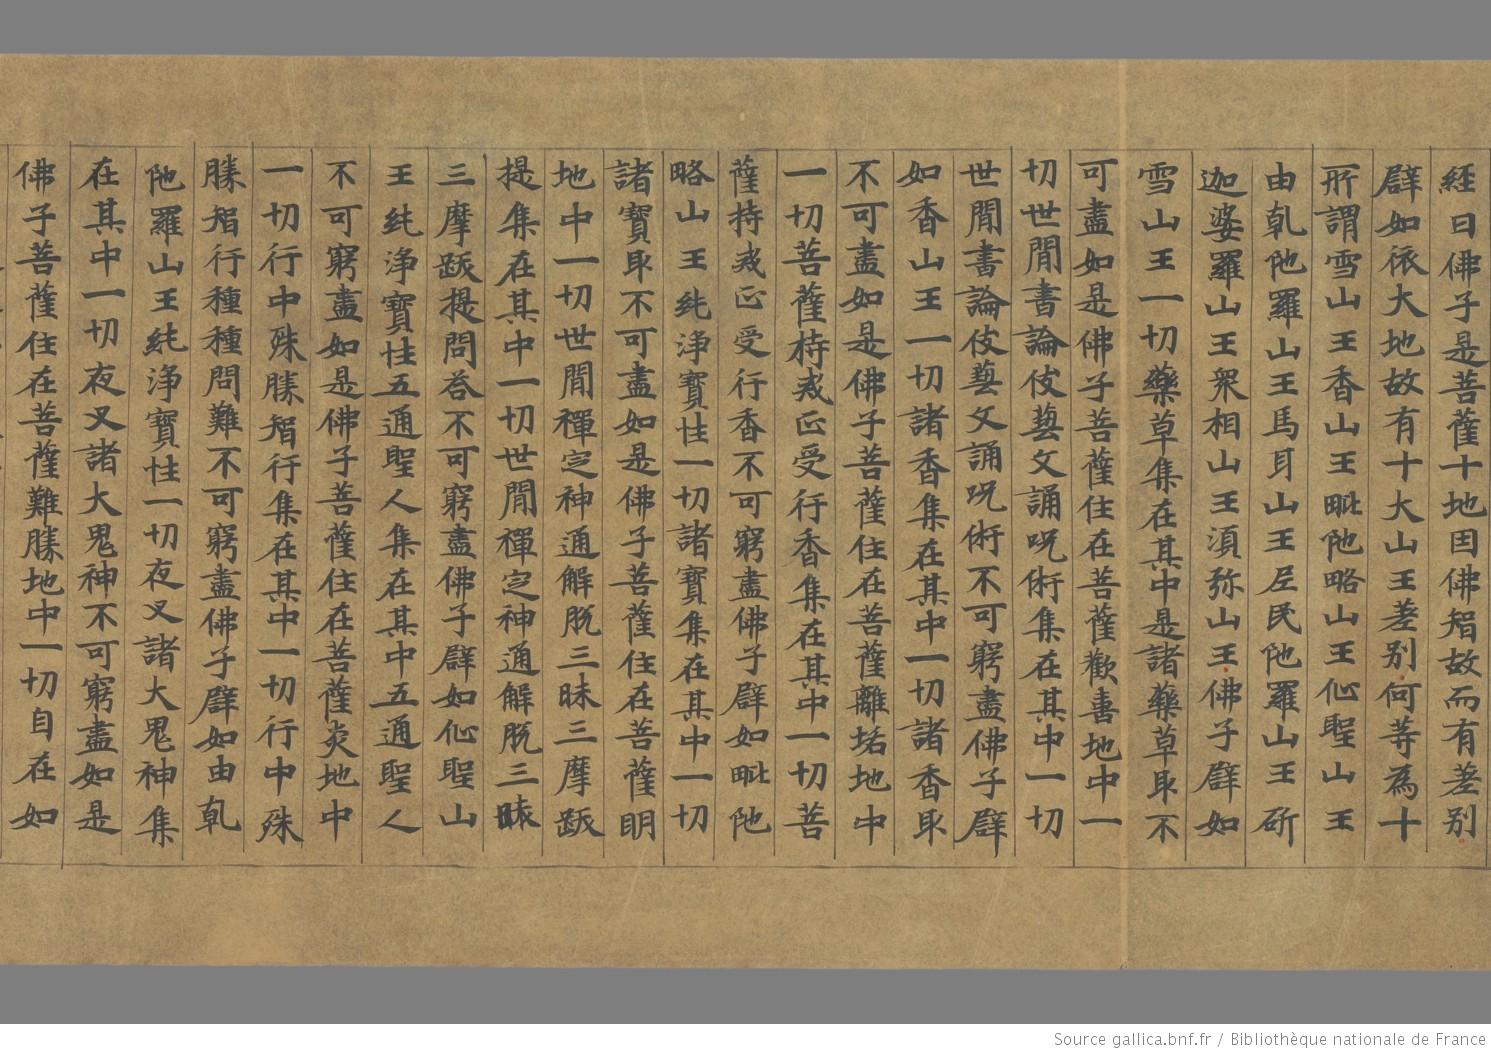 經曰佛子是菩薩十地因佛智故而有差別
辟如依大地故有十大山王差別何等為十
所謂雪山王香山王毗陁略山王仙聖山王
由乹陁羅山王馬耳山王尼民陁羅山王斫
迦婆羅山王衆相山王湏弥山王佛子辟如
雪山王一切藥草集在其中是諸藥草取不
可盡如是佛子菩薩住在菩薩歡喜地中一
切世閒書論伎藝文誦呪術集在其中一切
世閒書論伎藝文誦呪術不可窮盡佛子辟
如香山王一切諸香集在其中一切諸香取
不可盡如是佛子菩薩住在菩薩離垢地中
一切菩薩持戒正受行香集在其中一切菩
薩持戒正受行香不可窮盡佛子辟如毗陁
略山王純淨寶性一切諸寶集在其中一切
諸寶取不可盡如是佛子菩薩住在菩薩明
地中一切世閒禪定神通解脫三昧三摩跋
提集在其中一切世閒禪定神通解脫三昧
三摩跋提問荅不可窮盡佛子辟如仙聖山
王純淨寶性五通聖人集在其中五通聖人
不可窮盡如是佛子菩薩住在菩薩炎地中
一切行中殊勝智行集在其中一切行中殊
勝智行種種問難不可窮盡佛子辟如由乹
陁羅山王純淨寶性一切夜叉諸大鬼神集
在其中一切夜叉諸大鬼神不可窮盡如是
佛子菩薩住在菩薩難勝地中一切自在如
Source gallica.bnf.fr / Bibliothèque nationale de France